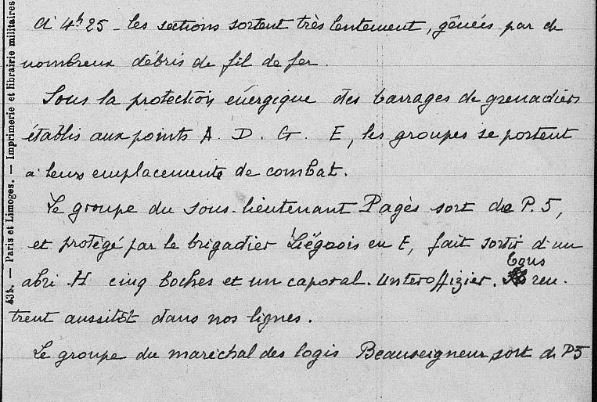 à 4h25 - les sections sortent très lentement, gênées par de
nombreux débris de fil de fer.
Sous la protection énergique des barrages de grenadiers
établis aux points A. D. G. E, les groupes se portent
à leurs emplacements de combat.
Le groupe du sous-lieutenant Pagès sort de P.5,
et protégé par le brigadier Liégeois en E, fait sortir d'un
abri H cinq boches et un caporal. Unteroffizier. Tous ren-
trent aussitôt dans nos lignes.
Le groupe du maréchal des logis Beauseigneur sort de P5
434. — Paris et Limoges. — Imprimerie et librairie militaires